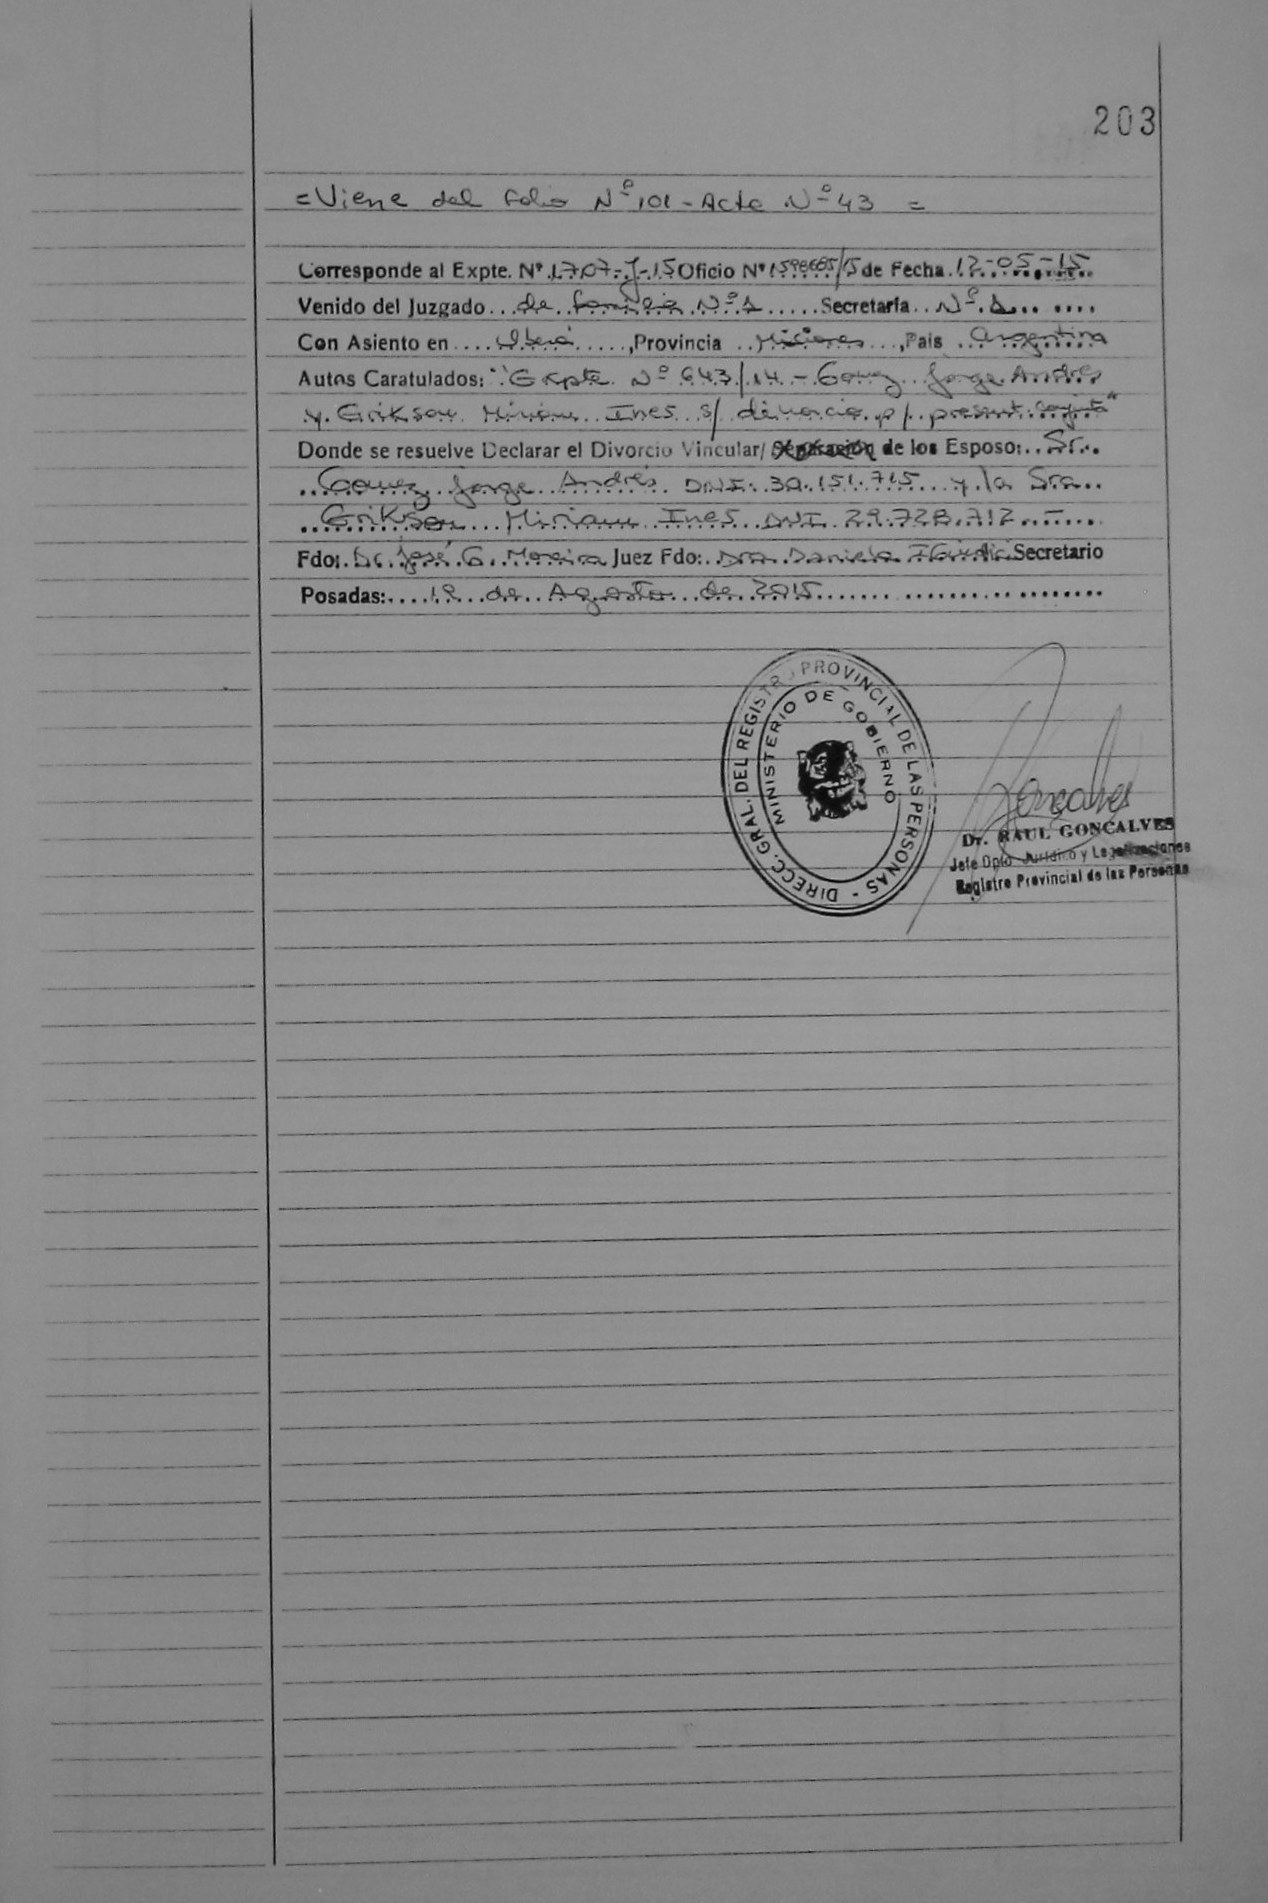 203
= Viene del folio Nº 101 - Acta Nº 43 =
Corresponde al Expte. Nº 1707-J-15 Oficio Nº /15 de Fecha 12-05-15
Venido del Juzgado de familia Nº 1 Secretaría Nº 1
Con Asiento en Oberá, Provincia Misiones, País Argentina
Autos Caratulados: "Expte Nº 643/14 - Gomez Jorge Andrés
y Erikson Miriam Ines s/ divorcio p/ present. conjunta"
Donde se resuelve Declarar el Divorcio Vincular/ Separación de los Esposo: Sr.
Gomez Jorge Andrés DNI. 30.151.715 y la Sra
Erikson Miriam Ines DNI 29.728.712 -
Fdo: Dr. José G. Moreira Juez Fdo: Dra Daniela Secretario
Posadas: 19 de Agosto de 2015
DIRECC. GRAL. DEL REGISTRO PROVINCIAL DE LAS PERSONAS -
MINISTERIO DE GOBIERNO
Goncalves
Dr. RAUL GONCALVES
Jefe Dpto. Jurídico y Legalizaciones
Registro Provincial de las Personas